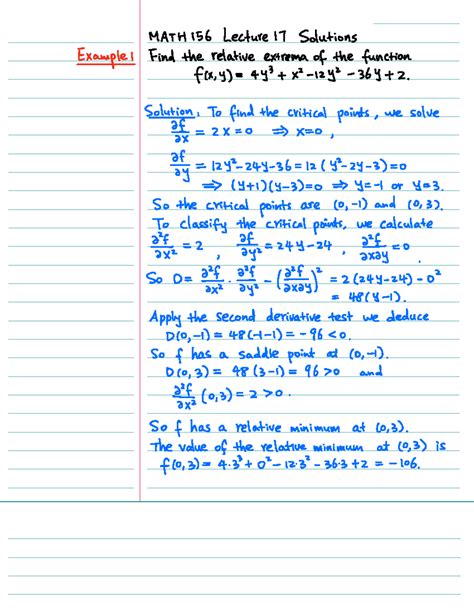 MATH 156 Lecture 17 Solutions
Example 1 Find the relative extrema of the function
f(x,y) = 4y³ + x² - 12y² - 36y + 2.
Solution: To find the critical points, we solve
∂f/∂x = 2x = 0 ⇒ x=0,
∂f/∂y = 12y² - 24y - 36 = 12 (y² - 2y - 3) = 0
⇒ (y+1)(y-3)=0 ⇒ y=-1 or y=3.
So the critical points are (0,-1) and (0,3).
To classify the critical points, we calculate
∂²f/∂x² = 2, ∂f/∂y² = 24y-24, ∂²f/∂x∂y = 0
So D = ∂²f/∂x² · ∂²f/∂y² - (∂²f/∂x∂y)² = 2(24y-24) - 0²
= 48(y-1).
Apply the second derivative test we deduce
D(0,-1) = 48(-1-1) = -96 < 0.
So f has a saddle point at (0,-1).
D(0,3) = 48(3-1) = 96 > 0 and
∂²f/∂x² (0,3) = 2 > 0.
So f has a relative minimum at (0,3).
The value of the relative minimum at (0,3) is
f(0,3) = 4·3³ + 0² - 12·3² - 36·3 + 2 = -106.